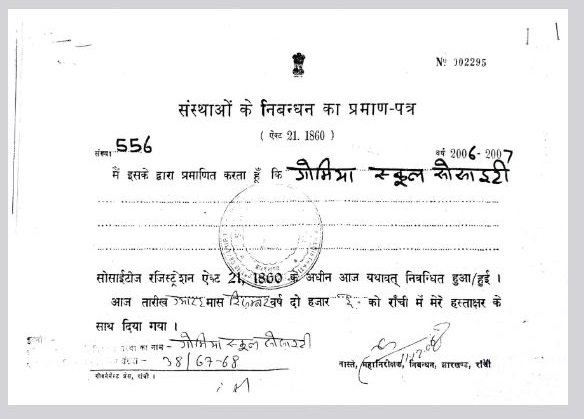 Nº 002295
संस्थाओं के निबन्धन का प्रमाण-पत्र
( ऐक्ट 21, 1860 )
संख्या 556 वर्ष 2006-2007
मैं इसके द्वारा प्रमाणित करता हूँ कि गोमिया स्कूल सोसाइटी
सोसाईटीज रजिस्ट्रेशन ऐक्ट 21, 1860 के अधीन आज यथावत् निबन्धित हुआ/हुई ।
आज तारीख मास दिसम्बर वर्ष दो हजार को राँची में मेरे हस्ताक्षर के
साथ दिया गया ।
का नाम - गोमिया स्कूल सोसाइटी
38/67-68
वास्ते, महानिरीक्षक, निबन्धन, झारखण्ड, राँची
गवर्नमेन्ट प्रेस, राँची ।